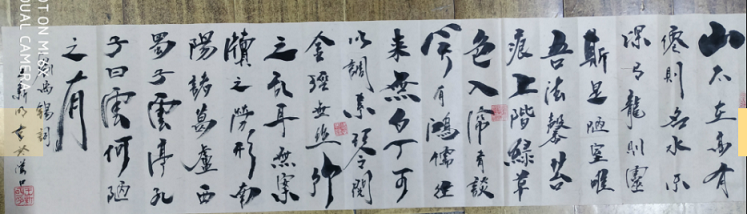 山不在高有
僊則名水不
深有龍則靈
斯是陋室唯
吾德馨苔
痕上階綠草
色入簾青談
笑有鴻儒往
来無白丁可
以調素琴閱
金經無絲竹
之亂耳無案
牘之勞形南
陽諸葛盧西
蜀子雲亭孔
子曰雲何陋
之有
劉禹锡詞
OT ON MI
UAL CAMERA